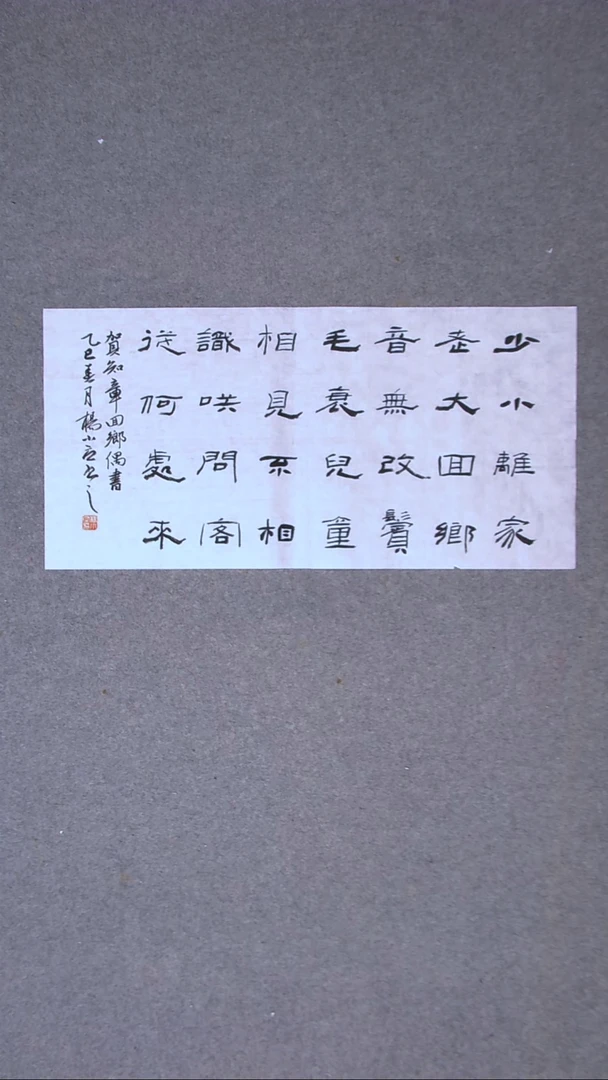 少小離家
老大囬鄉
音無改鬢
毛衰兒童
相見不相
識咲問客
從何處來
賀知章回鄉偶書
乙巳春月楊小書之